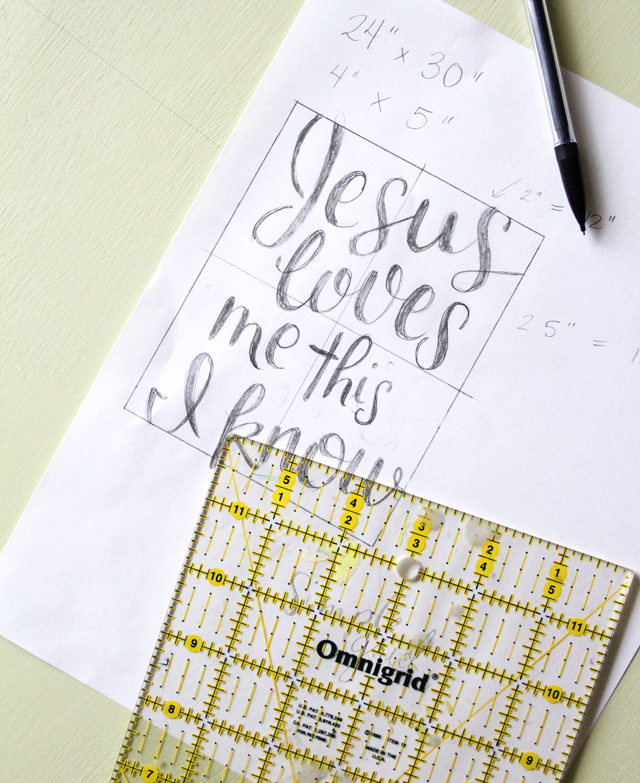 24" x 30"
4" x 5"
✓ 2" = 12"
2.5" =
Jesus
loves
me this
I know
5 4 3 2 1
1 2 3 4 5
11 11
10 10
9 9
8
7
Omnigrid®
U.S. PAT.
U.S. PAT.
MADE IN
U.S.A.